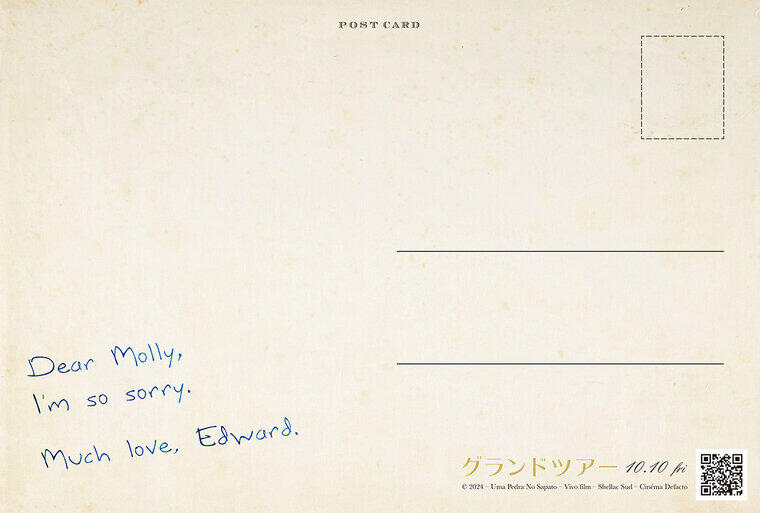 POST CARD
Dear Molly,
I'm so sorry.
Much love, Edward.
グランドツアー 10.10 fri
© 2024 – Uma Pedra No Sapato – Vivo film – Shellac Sud – Cinéma Defacto